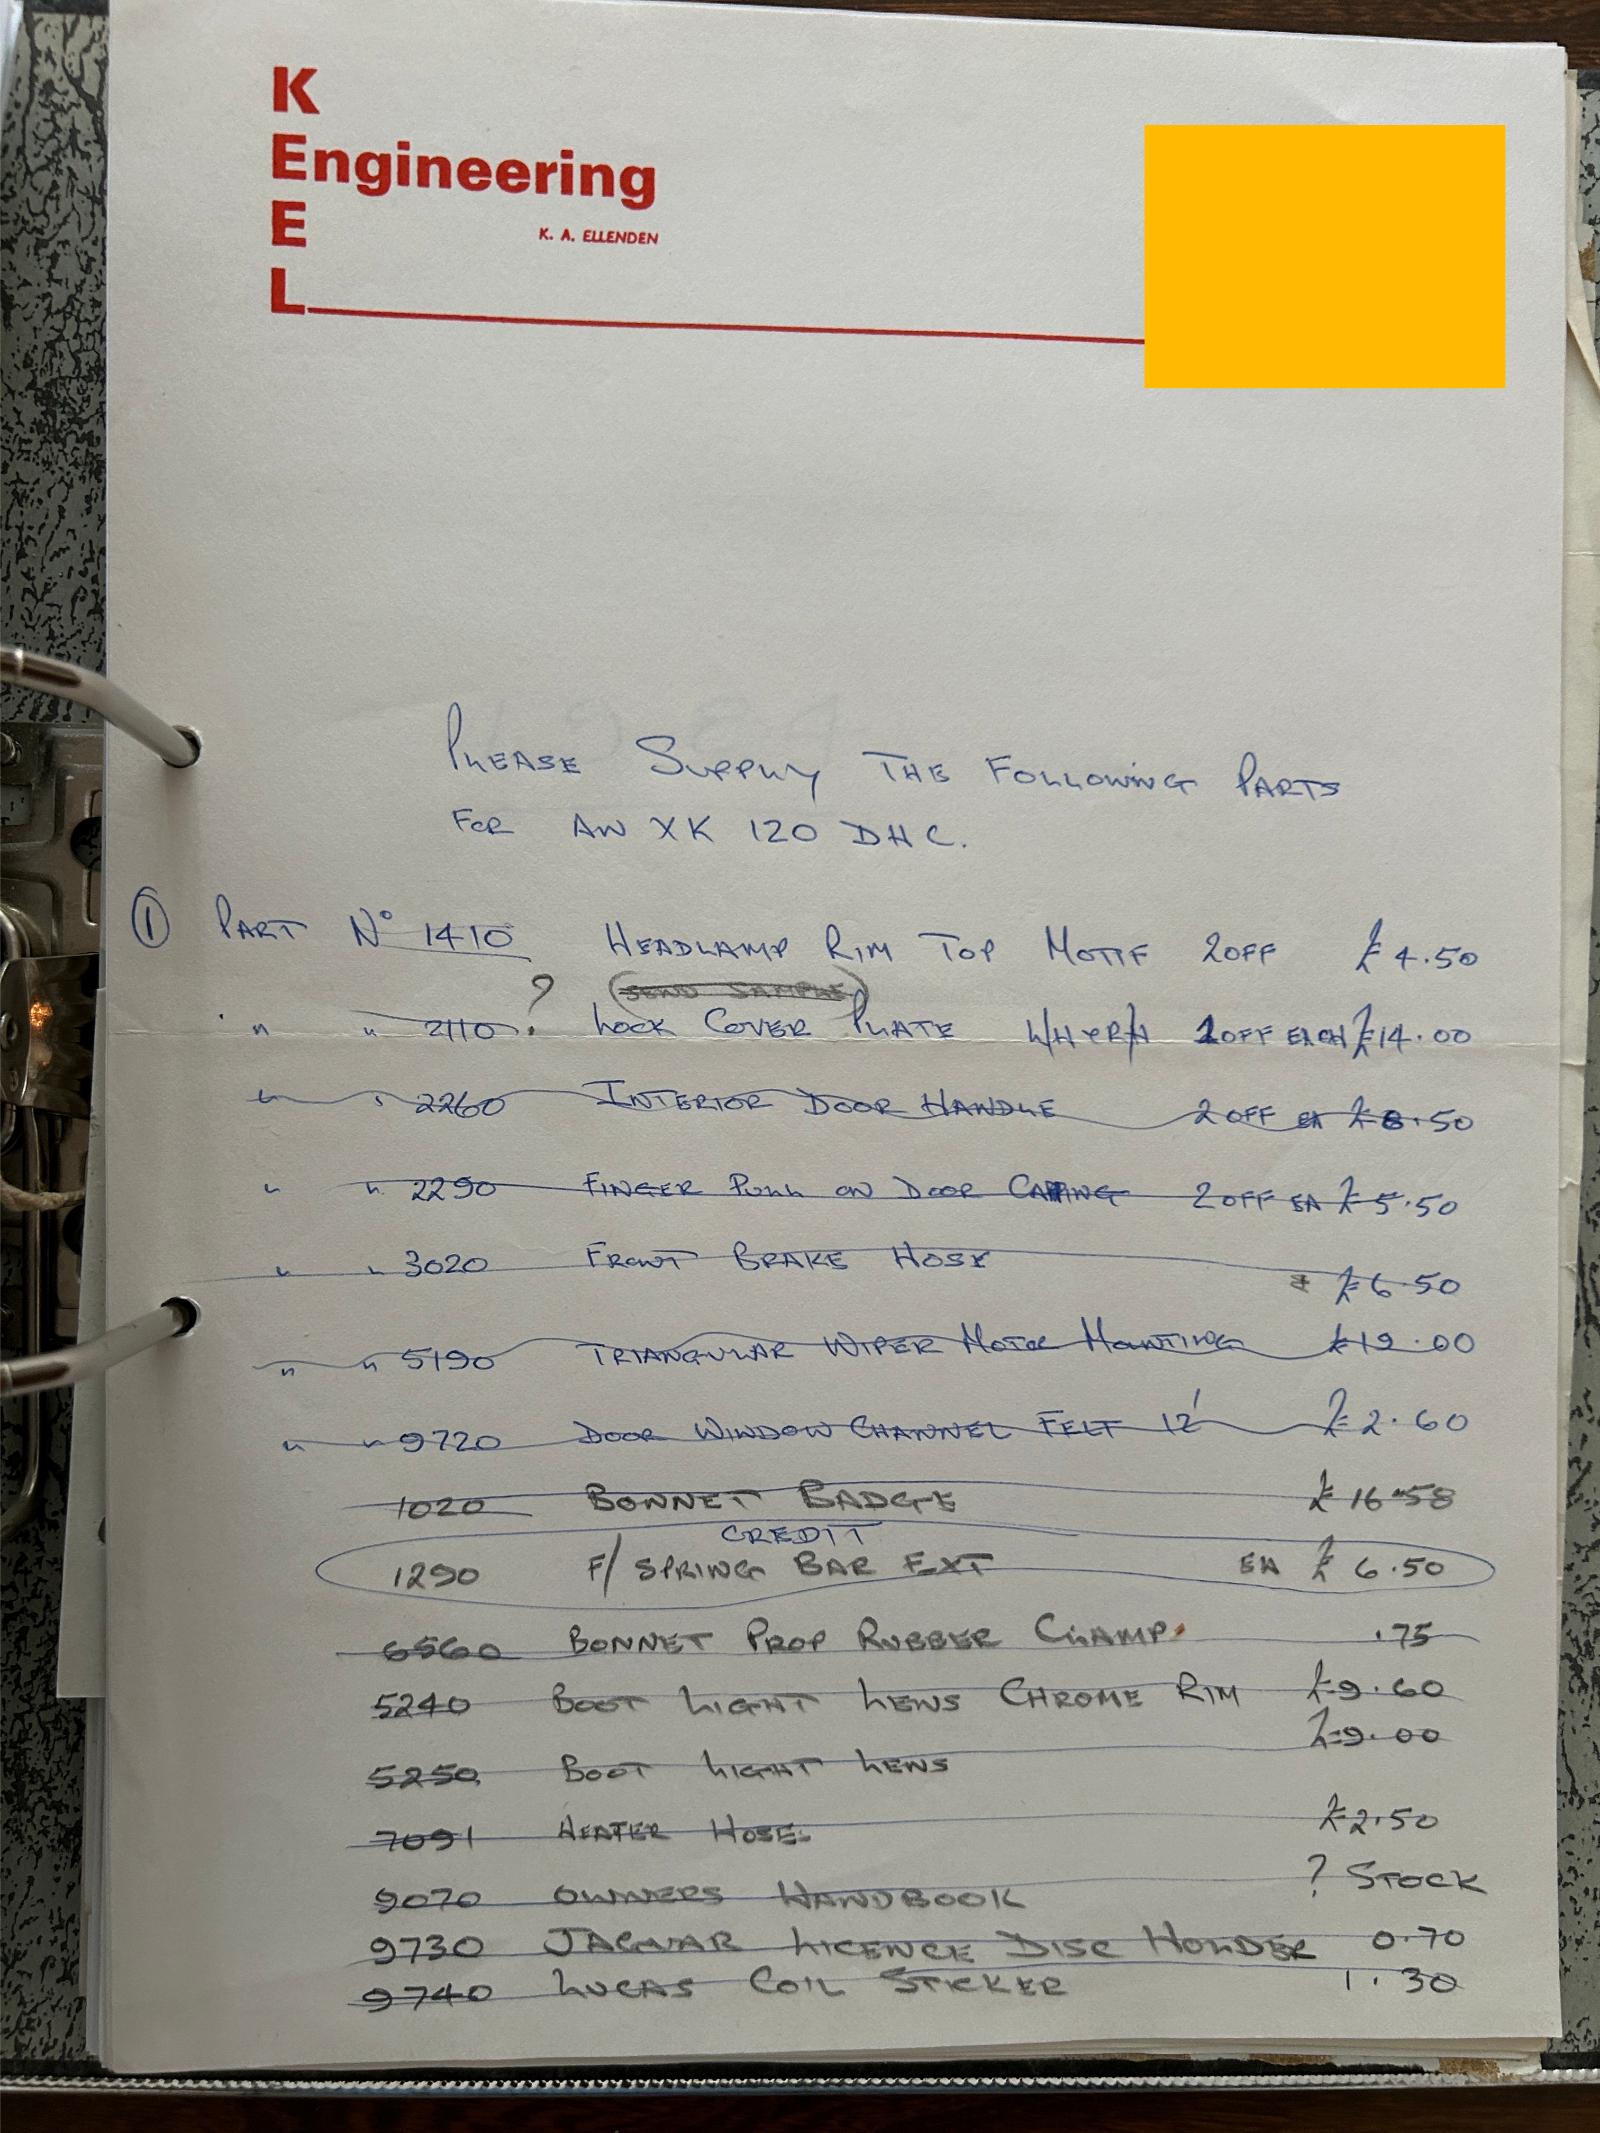 K
Engineering
E
K. A. ELLENDEN
L
PLEASE SUPPLY THE FOLLOWING PARTS
FOR AN XK 120 DHC.
① PART Nº 1410 HEADLAMP RIM TOP MOTIF 2 OFF £4.50
? (SEND SAMPLE)
" " 2110 LOCK COVER PLATE L/H & R/H 1 OFF EACH £14.00
" " 2260 INTERIOR DOOR HANDLE 2 OFF EA £8.50
" " 2290 FINGER PULL ON DOOR CAPPING 2 OFF EA £5.50
" " 3020 FRONT BRAKE HOSE £6.50
" " 5190 TRIANGULAR WIPER MOTOR MOUNTING £12.00
" " 9720 DOOR WINDOW CHANNEL FELT 12' £2.60
1020 BONNET BADGE £16-58
CREDIT
1290 F/SPRING BAR EXT EA £6.50
6560 BONNET PROP RUBBER CLAMP. .75
5240 BOOT LIGHT LENS CHROME RIM £9.60
5250 BOOT LIGHT LENS £9.00
7091 HEATER HOSE. £2.50
9070 OWNERS HANDBOOK ? STOCK
9730 JAGUAR LICENCE DISC HOLDER 0.70
9740 LUCAS COIL STICKER 1.30